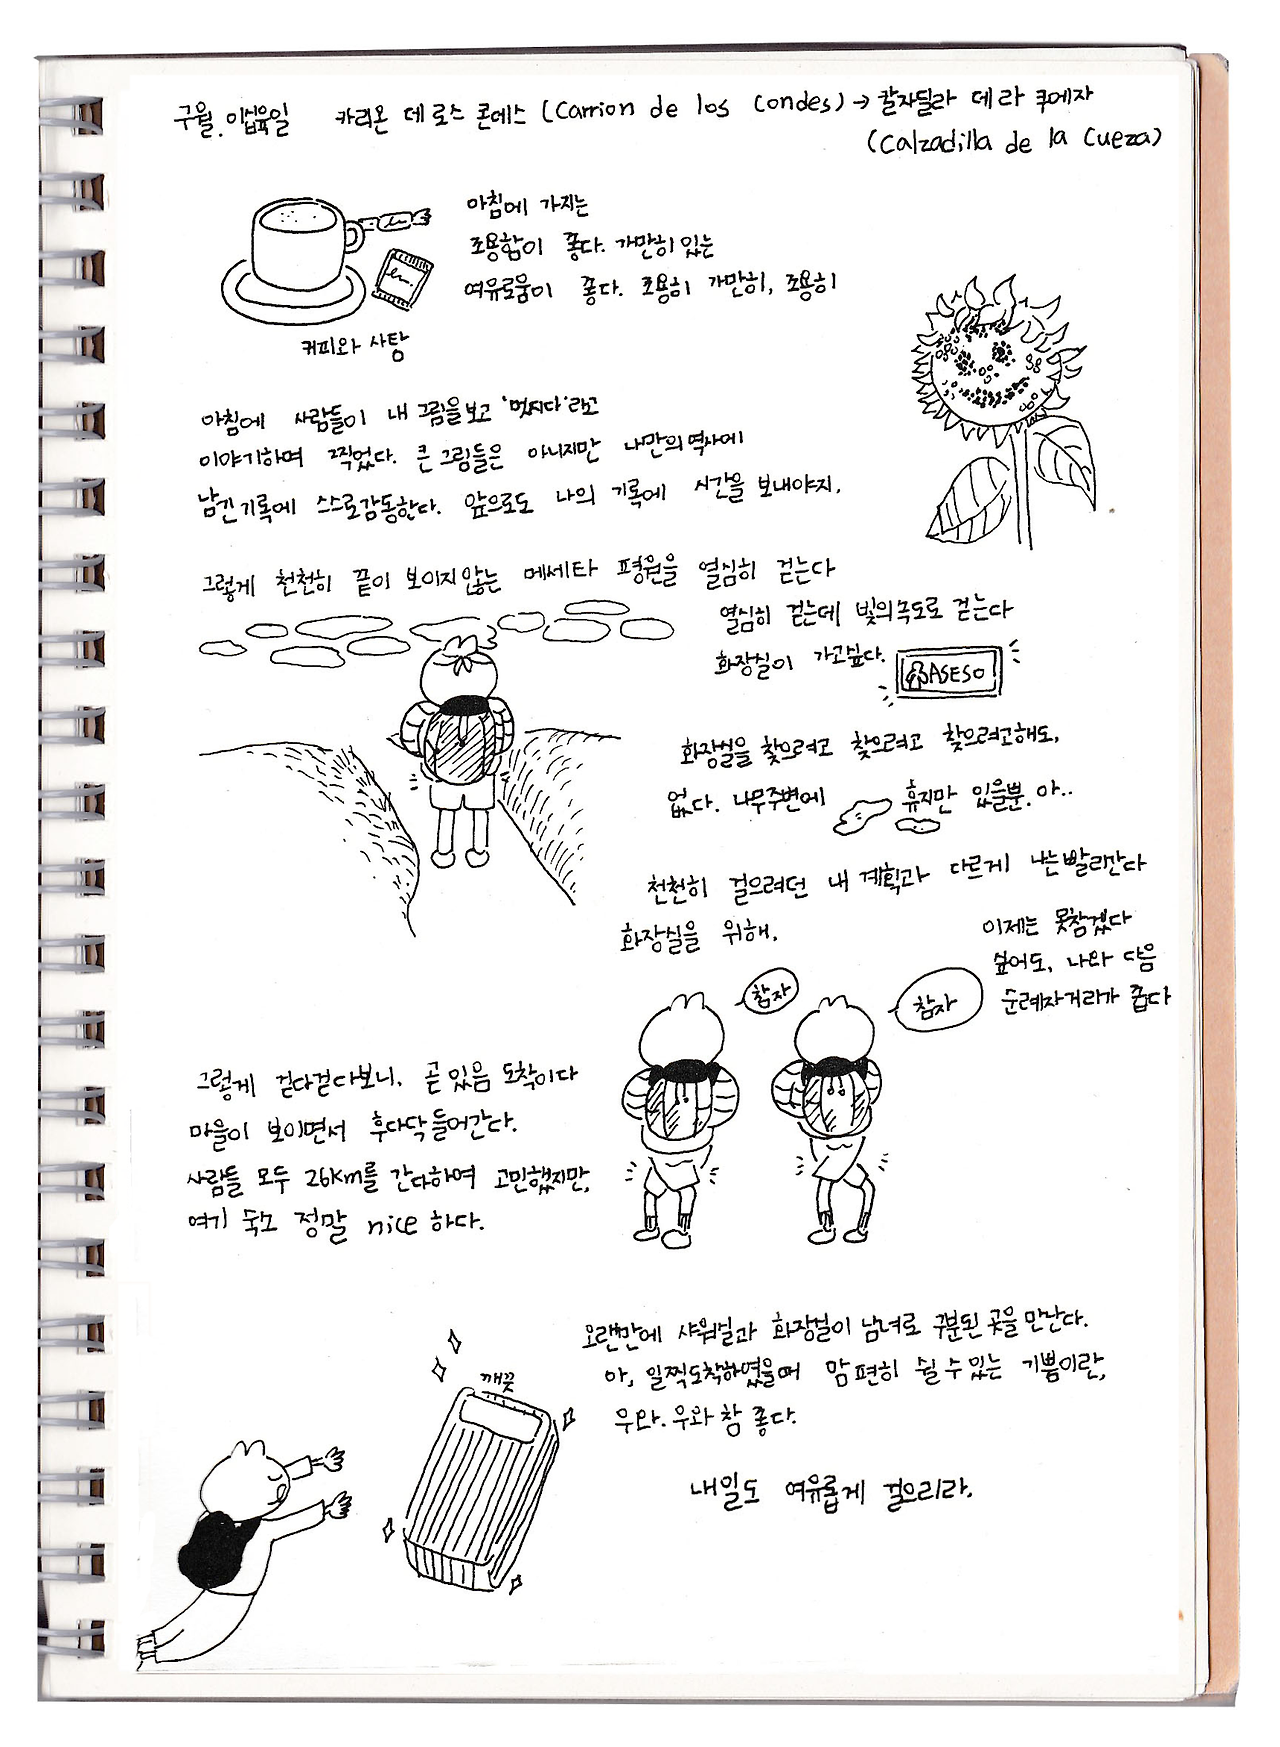 구월.이십육일 카리온 데 로스 콘데스 (Carrion de los Condes) → 칼자딜라 데 라 쿠에자
(Calzadilla de la Cueza)
아침에 가지는
조용함이 좋다. 가만히 있는
여유로움이 좋다. 조용히 가만히, 조용히
커피와 사탕
아침에 사람들이 내 그림을 보고 '멋지다'라고
이야기하며 찍었다. 큰 그림들은 아니지만 나만의 역사에
남긴 기록에 스스로 감동한다. 앞으로도 나의 기록에 시간을 보내야지.
그렇게 천천히 끝이 보이지않는 메세타 평원을 열심히 걷는다
열심히 걷는데 빛의속도로 걷는다
화장실이 가고싶다.
ASESO
화장실을 찾으려고 찾으려고 찾으려고해도,
없다. 나무주변에 휴지만 있을뿐. 아..
천천히 걸으려던 내 계획과 다르게 나는 빨리간다
화장실을 위해.
이제는 못참겠다
싶어도, 나와 다음
순례자거리가 좁다
참자
참자
그렇게 걷다걷다보니, 곧 있음 도착이다
마을이 보이면서 후다닥 들어간다.
사람들 모두 26km를 간다하여 고민했지만,
여기 숙소 정말 nice 하다.
오랜만에 샤워실과 화장실이 남녀로 구분된 곳을 만난다.
아, 일찍도착하였을때 맘 편히 쉴 수 있는 기쁨이란,
우와. 우와 참 좋다.
깨끗
내일도 여유롭게 걸으리라.